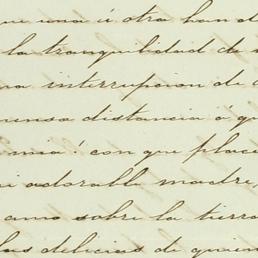 que una ú otra han d
la tranquilidad de
na interrupcion de
mensa distancia á qu
omia! con que place
i adorable madre,
amo sobre la tierra
las delicias de quien